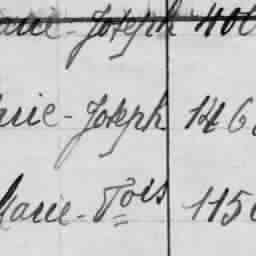 arie-Joseph 400
arie-Joseph 146
Marie-Fois 1150